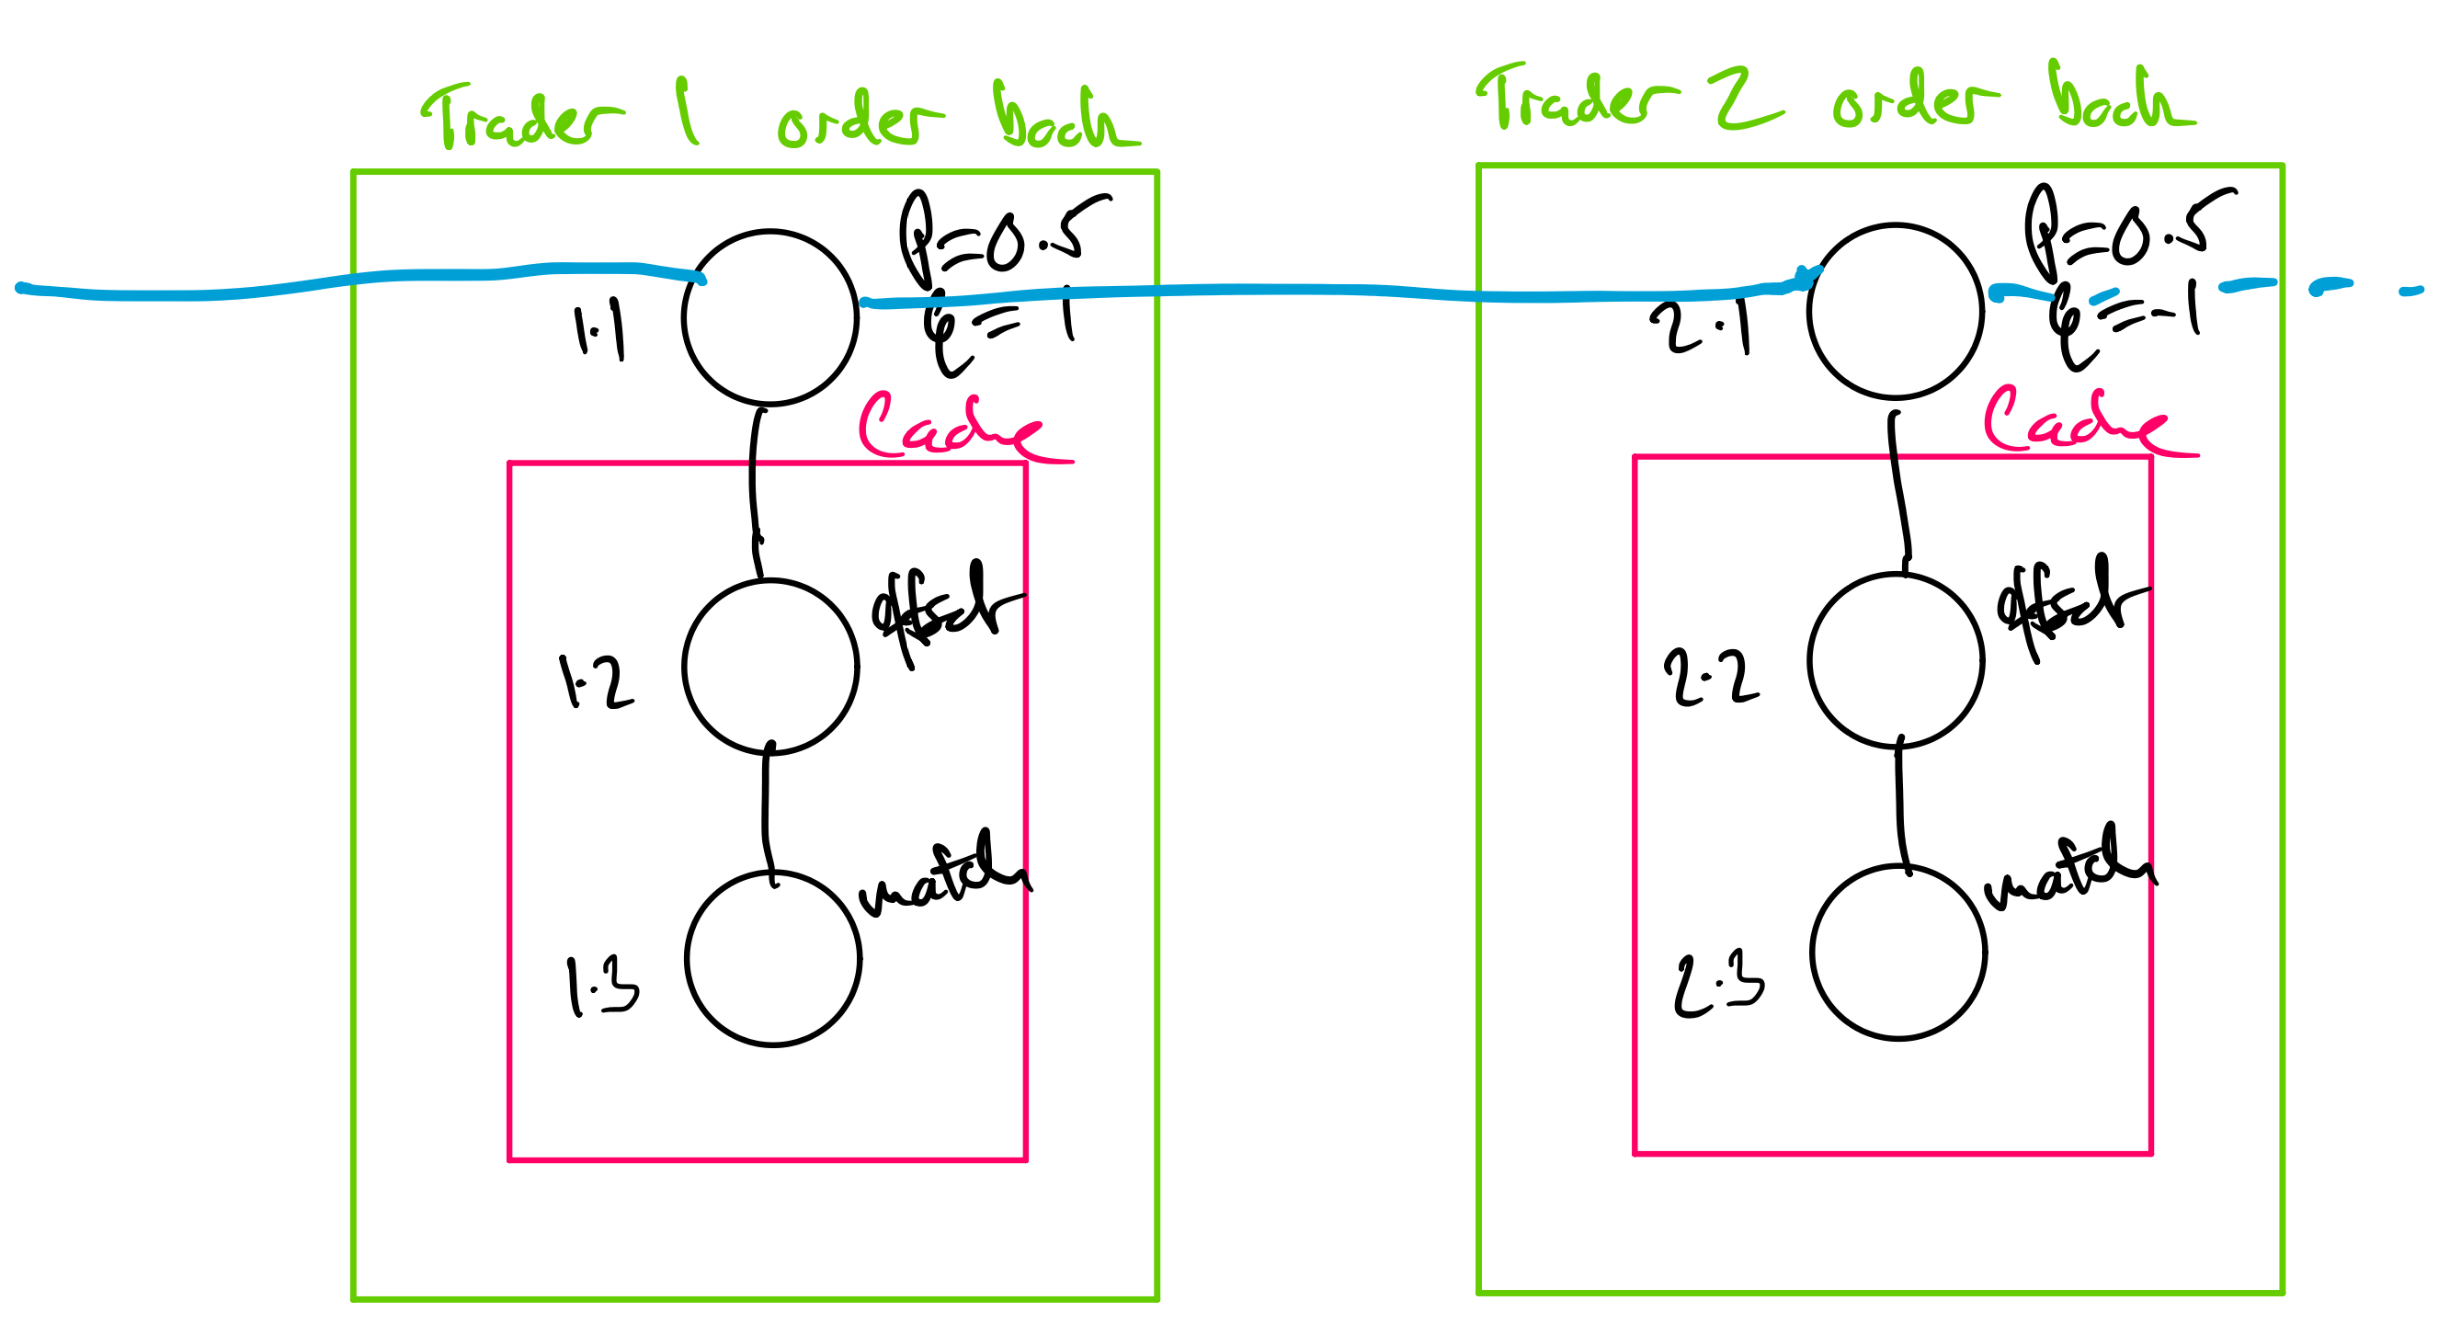 Trader 1 order book
P=0.5
q=1
1.1
Cache
offset
1.2
match
1.3
Trader 2 order book
P=0.5
q=-1
2.1
Cache
offset
2.2
match
2.3